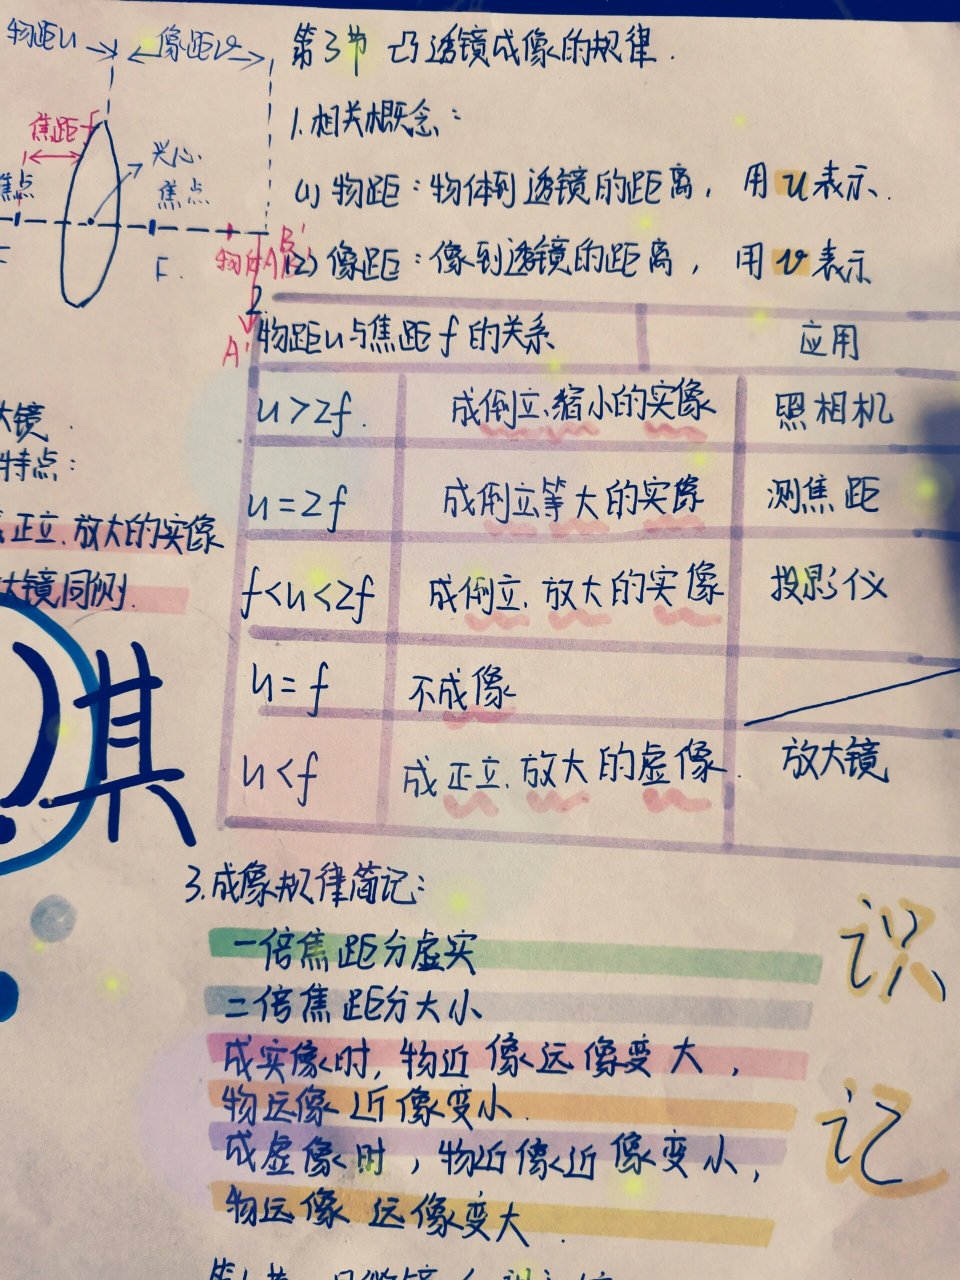 物距u
像距v
第3节 凸透镜成像的规律.
1.相关概念:
焦距f
光心
焦点
(1)物距:物体到透镜的距离,用u表示.
焦点
F
F.
B'
物体AB
(2)像距:像到透镜的距离,用v表示
2.
A'
物距u与焦距f的关系 应用
u>2f. 成倒立、缩小的实像 照相机
u=2f 成倒立等大的实像 测焦距
f<u<2f 成倒立、放大的实像 投影仪
u=f 不成像
u<f 成正立、放大的虚像. 放大镜
大镜.
特点:
正立.放大的实像
大镜同侧.
棋
3.成像规律简记:
一倍焦距分虚实
二倍焦距分大小
成实像时,物近像远像变大,
物远像近像变小.
成虚像时,物近像近像变小,
物远像远像变大.
识
记